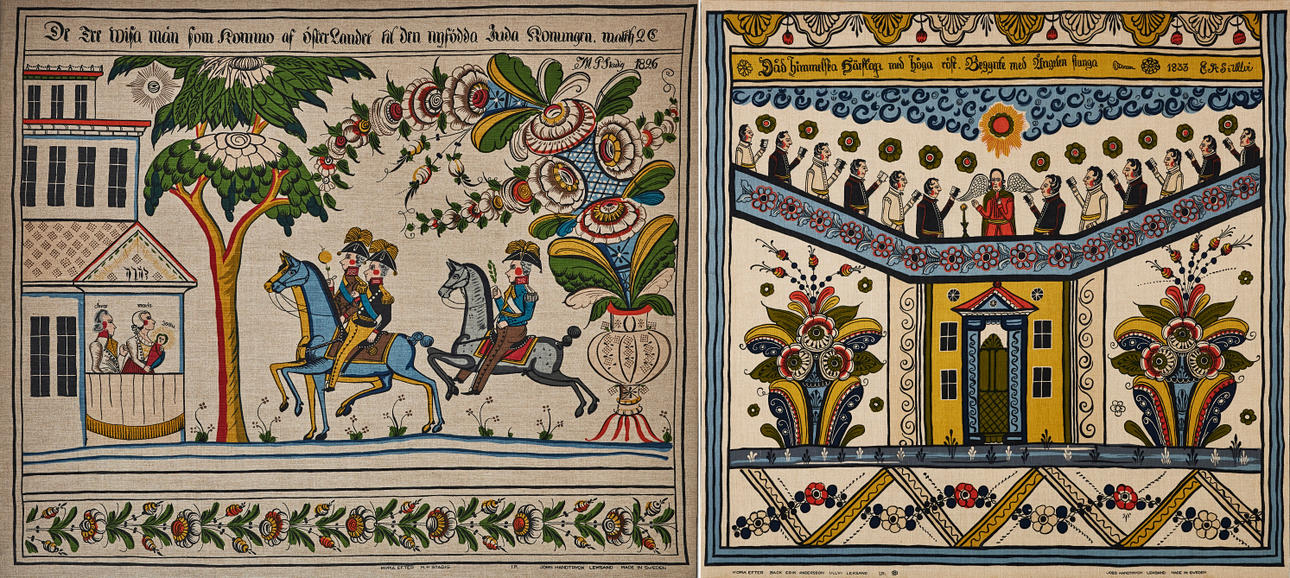 De Tre wisa män som Kommo af österLandet til den nyfödda Juda Konungen. math 2 C
M P Stadig 1826
maria
KOPIA EFTER M.P. STADIG I.P. JOBS HANDTRYCK LEKSAND MADE IN SWEDEN
Dåd himmelska Härskap med höga röst. Begynte med Ängelen siunga 1833
KOPIA EFTER BACK ERIK ANDERSSON ULLVI LEKSAND I.P. JOBS HANDTRYCK LEKSAND MADE IN SWEDEN